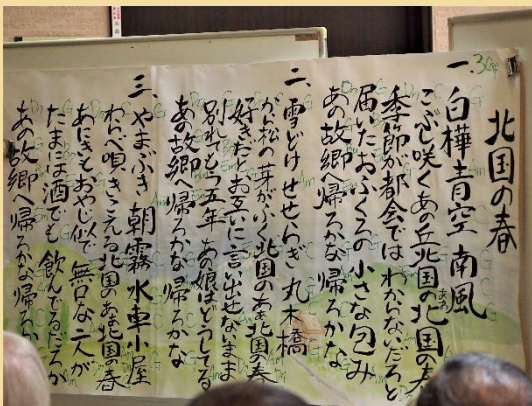 北国の春
一、白樺 青空 南風
こぶし咲くあの丘北国の北国の春
季節が都会では わからないだろと
届いたおふくろの 小さな包み
あの故郷へ帰ろかな 帰ろかな
二、雪どけ せせらぎ 丸木橋
から松の 芽がふく北国のあゝ北国の春
好きだとお互いに 言い出せないまま
別れてもう五年 あの娘はどうしてる
あの故郷へ帰ろかな 帰ろかな
三、やまぶき 朝霧 水車小屋
わらべ唄 きこえる北国のあゝ北国の春
あにきもおやじ似で 無口な二人が
たまには酒でも 飲んでるだろか
あの故郷へ帰ろかな帰ろか